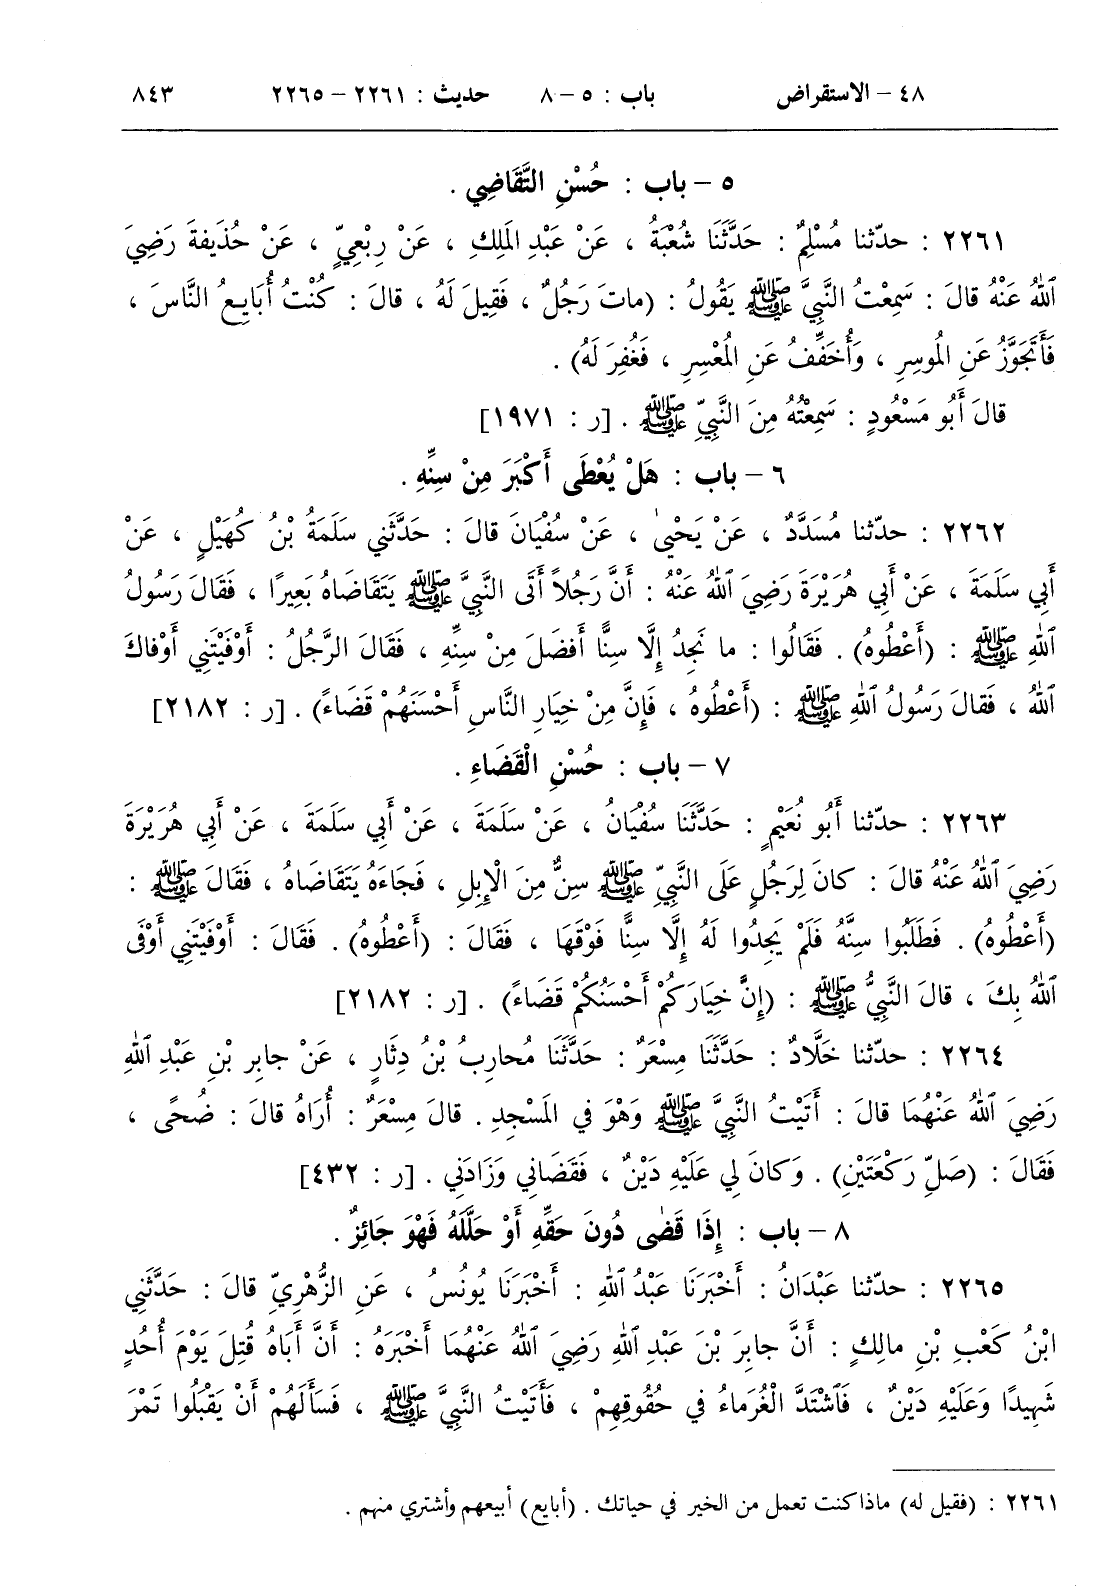 ٤٨ – الاستقراض باب : ٥ – ٨ حديث : ٢٢٦١ – ٢٢٦٥ ٨٤٣
٥ – باب : حُسْنِ التَّقَاضِي .
٢٢٦١ : حدّثنا مُسْلِمٌ : حَدَّثَنَا شُعْبَةُ ، عَنْ عَبْدِ المَلِكِ ، عَنْ رِبْعِيٍّ ، عَنْ حُذَيفةَ رَضِيَ
ٱللهُ عَنْهُ قالَ : سَمِعْتُ النَّبِيَّ ﷺ يَقُولُ : (ماتَ رَجُلٌ ، فَقِيلَ لَهُ ، قالَ : كُنْتُ أُبَايِعُ النَّاسَ ،
فَأَتَجَوَّزُ عَنِ المُوسِرِ ، وَأُخَفِّفُ عَنِ المُعْسِرِ ، فَغُفِرَ لَهُ) .
قالَ أَبُو مَسْعُودٍ : سَمِعْتُهُ مِنَ النَّبِيِّ ﷺ . [ر : ١٩٧١]
٦ – باب : هَلْ يُعْطَى أَكْبَرَ مِنْ سِنِّهِ .
٢٢٦٢ : حدّثنا مُسَدَّدٌ ، عَنْ يَحْيىٰ ، عَنْ سُفْيَانَ قالَ : حَدَّثَنِي سَلَمَةُ بْنُ كُهَيْلٍ ، عَنْ
أَبِي سَلَمَةَ ، عَنْ أَبِي هُرَيْرَةَ رَضِيَ ٱللهُ عَنْهُ : أَنَّ رَجُلاً أَتَى النَّبِيَّ ﷺ يَتَقَاضَاهُ بَعِيرًا ، فَقَالَ رَسُولُ
ٱللهِ ﷺ : (أَعْطُوهُ) . فَقَالُوا : ما نَجِدُ إِلَّا سِنًّا أَفضَلَ مِنْ سِنِّهِ ، فَقَالَ الرَّجُلُ : أَوْفَيْتَنِي أَوْفاكَ
ٱللهُ ، فَقالَ رَسُولُ ٱللهِ ﷺ : (أَعْطُوهُ ، فَإِنَّ مِنْ خِيَارِ النَّاسِ أَحْسَنَهُمْ قَضَاءً) . [ر : ٢١٨٢]
٧ – باب : حُسْنِ الْقَضَاءِ .
٢٢٦٣ : حدّثنا أَبُو نُعَيْمٍ : حَدَّثَنَا سُفْيَانُ ، عَنْ سَلَمَةَ ، عَنْ أَبِي سَلَمَةَ ، عَنْ أَبِي هُرَيْرَةَ
رَضِيَ ٱللهُ عَنْهُ قالَ : كانَ لِرَجُلٍ عَلَى النَّبِيِّ ﷺ سِنٌّ مِنَ الْإِبِلِ ، فَجَاءَهُ يَتَقَاضَاهُ ، فَقَالَ ﷺ :
(أَعْطُوهُ) . فَطَلَبُوا سِنَّهُ فَلَمْ يَجِدُوا لَهُ إِلَّا سِنًّا فَوْقَهَا ، فَقَالَ : (أَعْطُوهُ) . فَقَالَ : أَوْفَيْتَنِي أَوْفَى
ٱللهُ بِكَ ، قالَ النَّبِيُّ ﷺ : (إِنَّ خِيَارَكُمْ أَحْسَنُكُمْ قَضَاءً) . [ر : ٢١٨٢]
٢٢٦٤ : حدّثنا خَلَّادٌ : حَدَّثَنَا مِسْعَرٌ : حَدَّثَنَا مُحارِبُ بْنُ دِثَارٍ ، عَنْ جابِرِ بْنِ عَبْدِ ٱللهِ
رَضِيَ ٱللهُ عَنْهُمَا قالَ : أَتَيْتُ النَّبِيَّ ﷺ وَهْوَ فِي المَسْجِدِ . قالَ مِسْعَرٌ : أُرَاهُ قالَ : ضُحًى ،
فَقَالَ : (صَلِّ رَكْعَتَيْنِ) . وَكانَ لِي عَلَيْهِ دَيْنٌ ، فَقَضَانِي وَزَادَنِي . [ر : ٤٣٢]
٨ – باب : إِذَا قَضٰى دُونَ حَقِّهِ أَوْ حَلَّلَهُ فَهْوَ جَائِزٌ .
٢٢٦٥ : حدّثنا عَبْدَانُ : أَخْبَرَنَا عَبْدُ ٱللهِ : أَخْبَرَنَا يُونُسُ ، عَنِ الزُّهْرِيِّ قالَ : حَدَّثَنِي
ابْنُ كَعْبِ بْنِ مالِكٍ : أَنَّ جابِرَ بْنَ عَبْدِ ٱللهِ رَضِيَ ٱللهُ عَنْهُمَا أَخْبَرَهُ : أَنَّ أَبَاهُ قُتِلَ يَوْمَ أُحُدٍ
شَهِيدًا وَعَلَيْهِ دَيْنٌ ، فَاشْتَدَّ الْغُرَماءُ فِي حُقُوقِهِمْ ، فَأَتَيْتُ النَّبِيَّ ﷺ ، فَسَأَلَهُمْ أَنْ يَقْبَلُوا تَمْرَ
٢٢٦١ : (فقيل له) ماذا كنت تعمل من الخير في حياتك . (أبايع) أبيعهم وأشتري منهم .